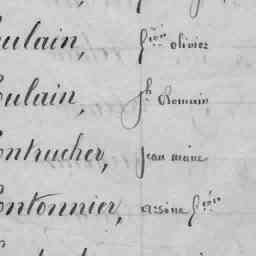 oulain, fçois olivier
oulain, jh Romain
ontrucher, jean marie
ontonnier, arsine fçois